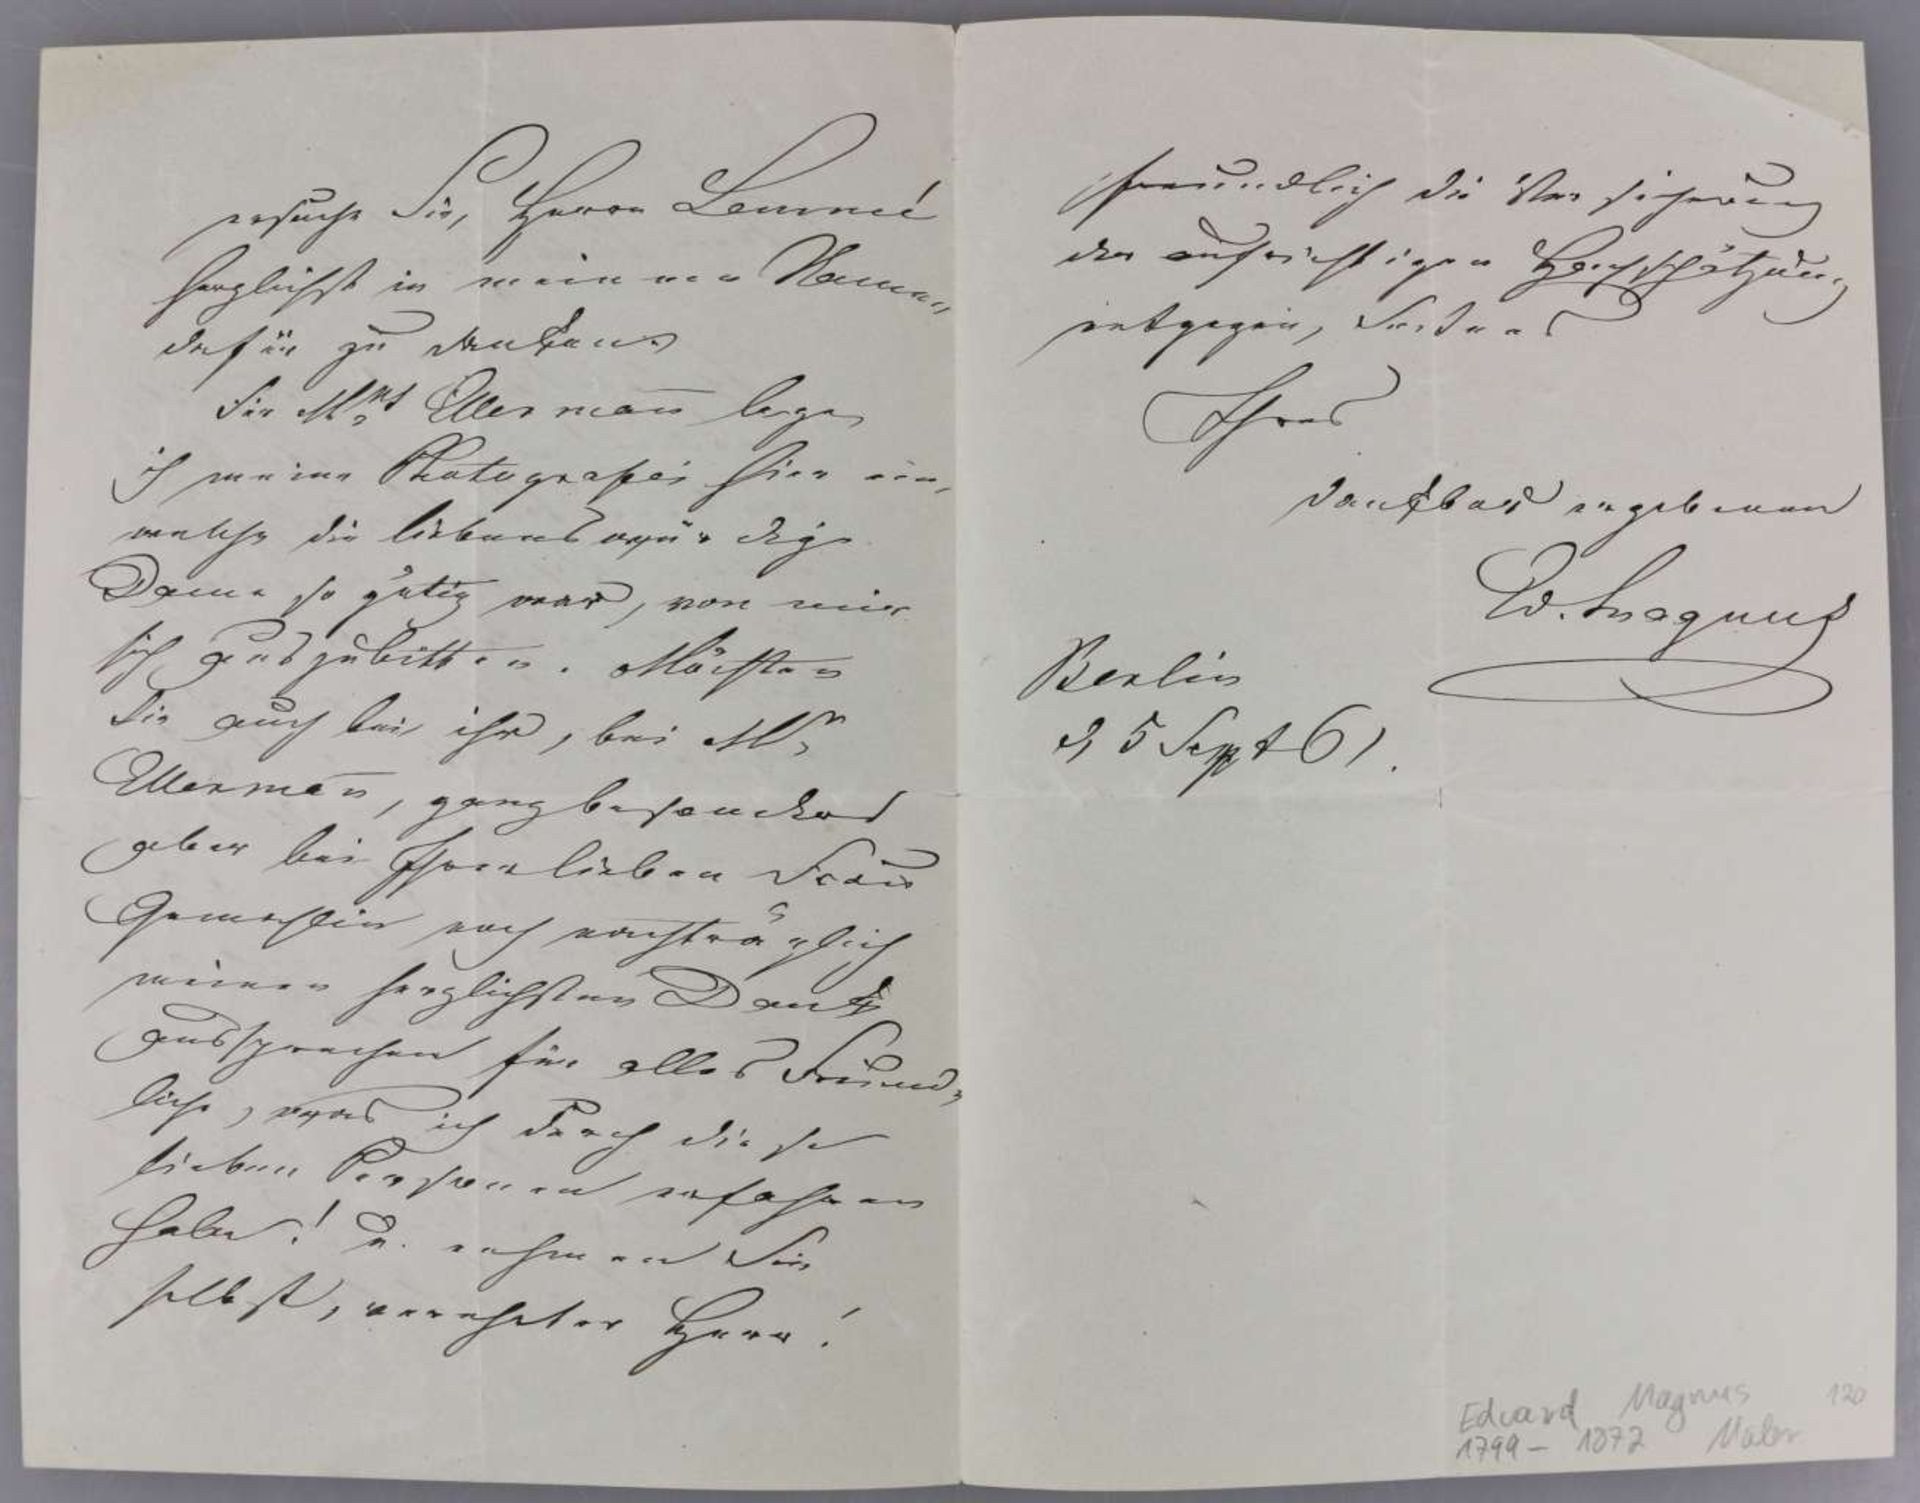 ersuche Sie, Herrn Lemmé
herzlichst in meinem Namen
dafür zu danken.
Für Mrs Ellermann lege
ich meine Photografie hier ein,
welche die liebenswürdige
Dame so gütig war, von mir
sich auszubitten. Möchten
Sie auch bei ihr, bei Mrs
Ellermann, ganz besonders
aber bei Ihrer lieben Frau
Gemahlin noch nachträglich
meinen herzlichsten Dank
aussprechen für alles Freund-
liche, was ich durch diese
lieben Personen erfahren
habe! u. nehmen Sie
selbst, verehrter Herr!
freundlich die Versicherung
der aufrichtigen Hochschätzung
entgegen,
Ihres
dankbar ergebenen
Ed. Magnus
Berlin
d, 5 Sept 61.
Eduard Magnus 120
1799 - 1872 Maler